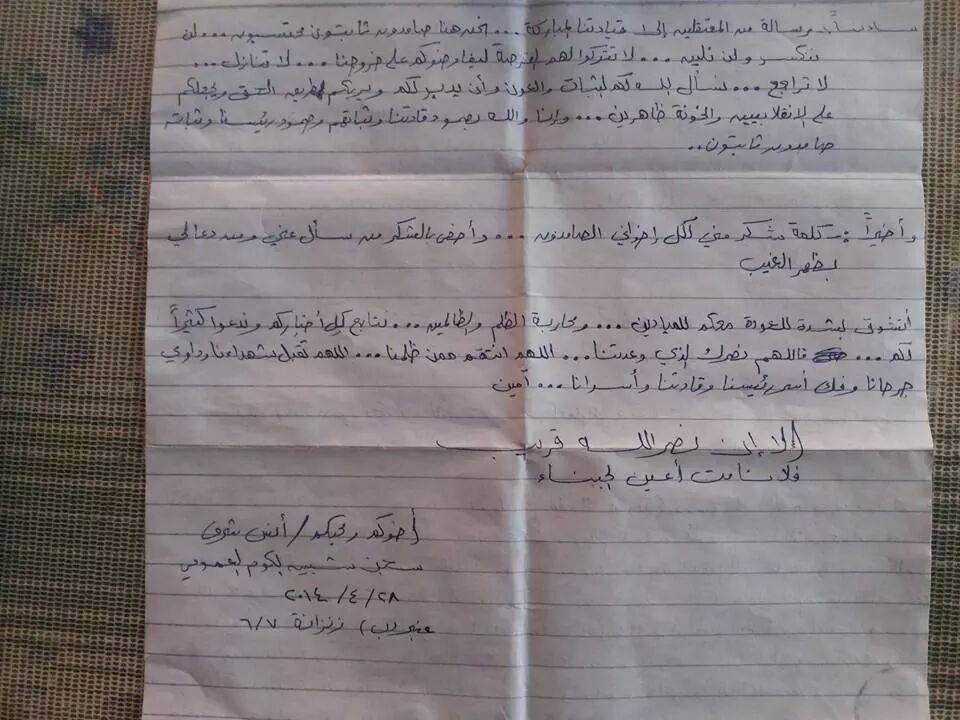 سادساً: رسالة من المعتقلين إلى قيادتنا المباركة... نحن هنا صامدون ثابتون محتسبون... لن
ننكسر ولن نلين... لا تتركوا لهم الفرصة ليفاوضوكم على خروجنا... لا تنازل...
لا تراجع... نسأل الله لكم الثبات والعون وأن يدبر لكم ويريكم طريق الحق ويجعلكم
على الانقلابيين والخونة ظاهرين... وإنا والله بصمود قادتنا وثباتهم وصمود رئيسنا وثباته
صامدون ثابتون..
وأخيراً: كلمة شكر مني لكل إخواني الصامدون... وأخص بالشكر من سأل عني ومن دعا لي
بظهر الغيب
أتشوق بشدة للعودة معكم للميادين... ومحاربة الظلم والظالمين... نتابع كل أخباركم وندعوا كثيراً
لكم... فاللهم نصرك الذي وعدتنا... اللهم انتقم ممن ظلمنا... اللهم تقبل شهداءنا وداوي
جرحانا وفك أسر رئيسنا وقادتنا وأسرانا... آمين
(ألا إن نصر الله قريب
فلا نامت أعين الجبناء
أخوكم ومحبكم/ أنس
سجن شبين الكوم العمومي
٢٨/٤/٢٠١٤
عنبر (ب) زنزانة ٦/٧